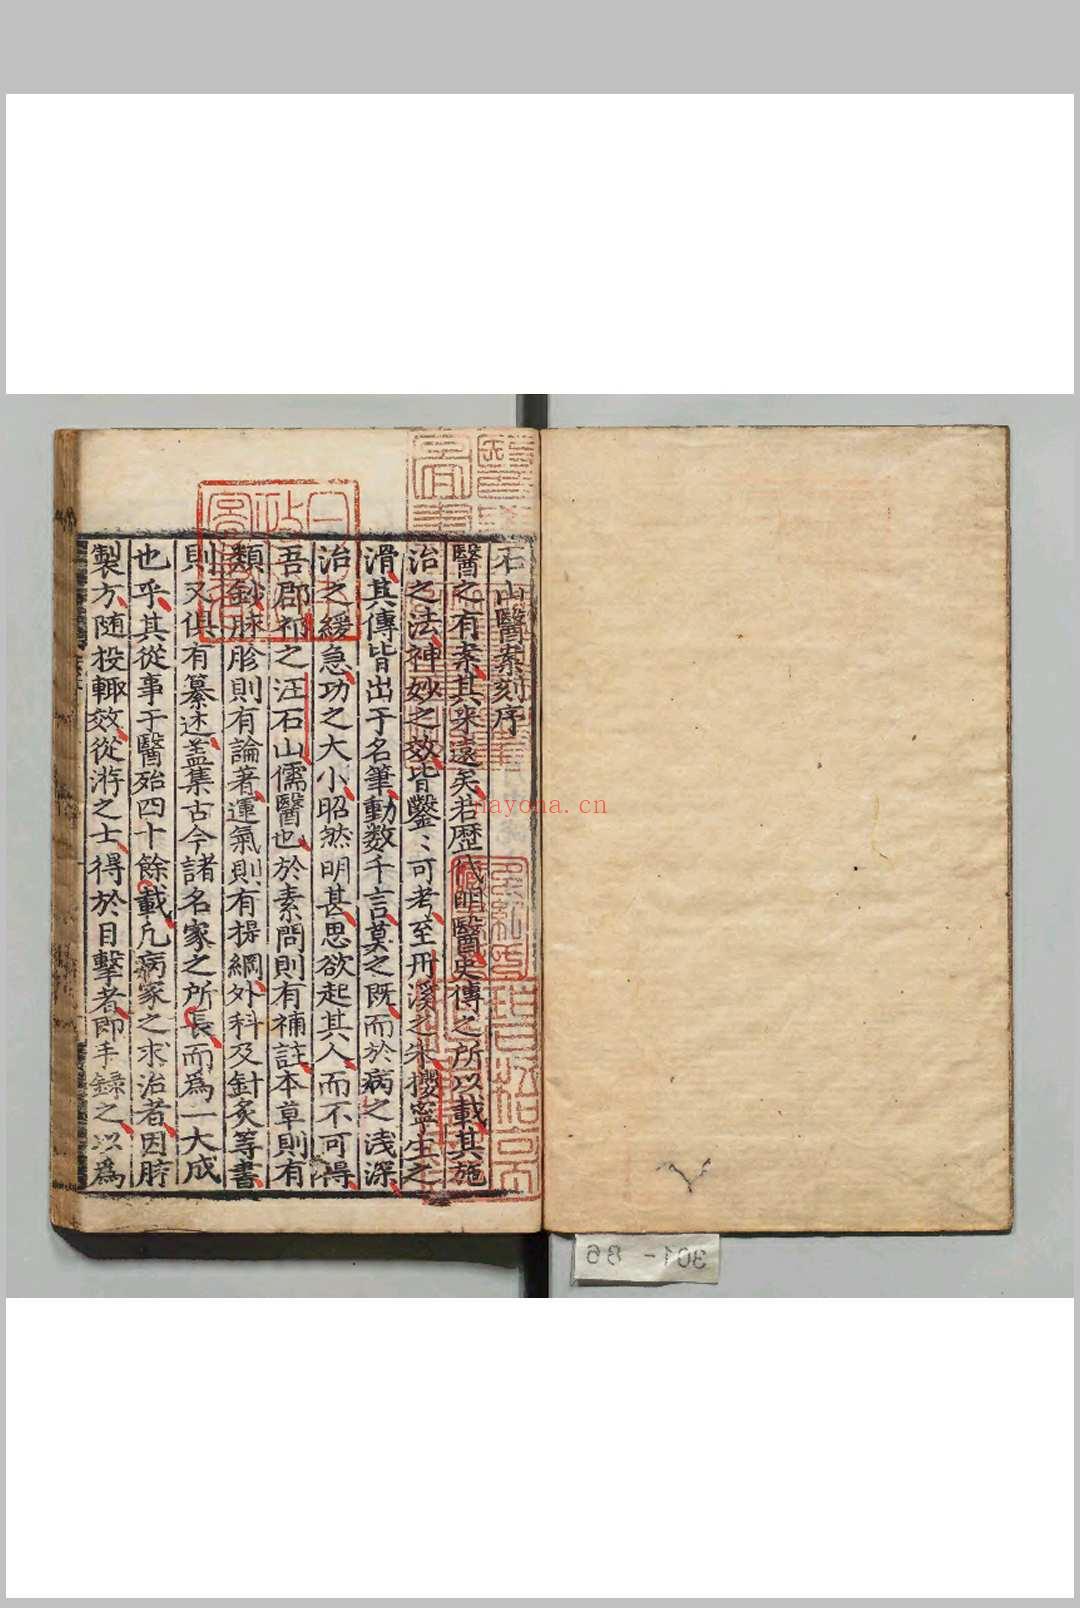 石山醫案刻序
醫之有案其来遠矣若歷代明醫史傳之所以載其施
治之法神妙之效皆鑿〻可考至丹溪之朱攖寧生之
滑其傳皆出于名筆動数千言莫之旣而於病之浅深
治之緩急功之大小昭然明甚思欲起其人而不可得
吾郡祁之汪石山儒醫也於素問則有補註本草則有
類鈔脉胗則有論著運氣則有提綱外科及針炙等書
則又俱有纂述盖集古今諸名家之所長而爲一大成
也乎其從事于醫殆四十餘載凢病家之求治者因脖
製方随投輙效從㳺之士得於目擊者即手録之以爲
nayona.cn
301-86